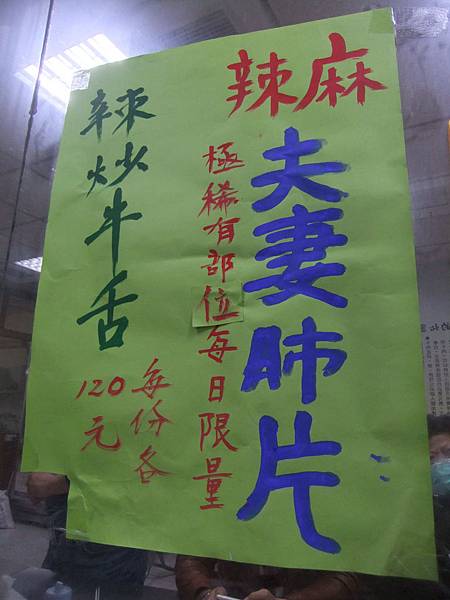 麻辣
夫妻肺片
極稀有部位每日限量
辣炒牛舌
每份各
120元